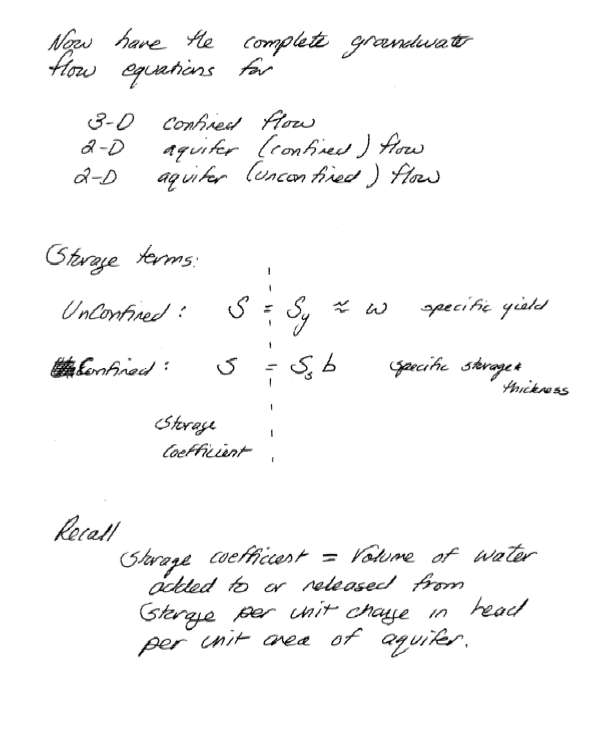 Now have the complete groundwater
flow equations for
3-D confined flow
2-D aquifer (confined) flow
2-D aquifer (unconfined) flow
Storage terms:
Unconfined: S = Sy ≈ w specific yield
Confined: S = Ss b specific storage *
thickness
Storage
Coefficient
Recall
Storage coefficient = Volume of water
added to or released from
Storage per unit change in head
per unit area of aquifer.